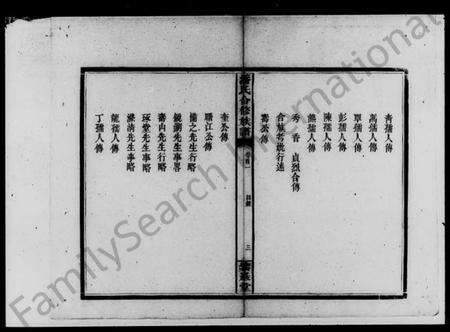 孺人傳
萬孺人傳
單孺人傳
彭孺人傳
陳孺人傳
熊孺人傳
秀香貞烈合傳
合族耆統行述
壽公傳
氏合修族譜
卷首
目錄
三
堂
奎公傳
聯江公傳
惕之先生行略
鏡湖先生事畧
壽山先生行略
琢堂先生事略
溪清先生事略
龍孺人傳
丁孺人傳
FamilySearch International